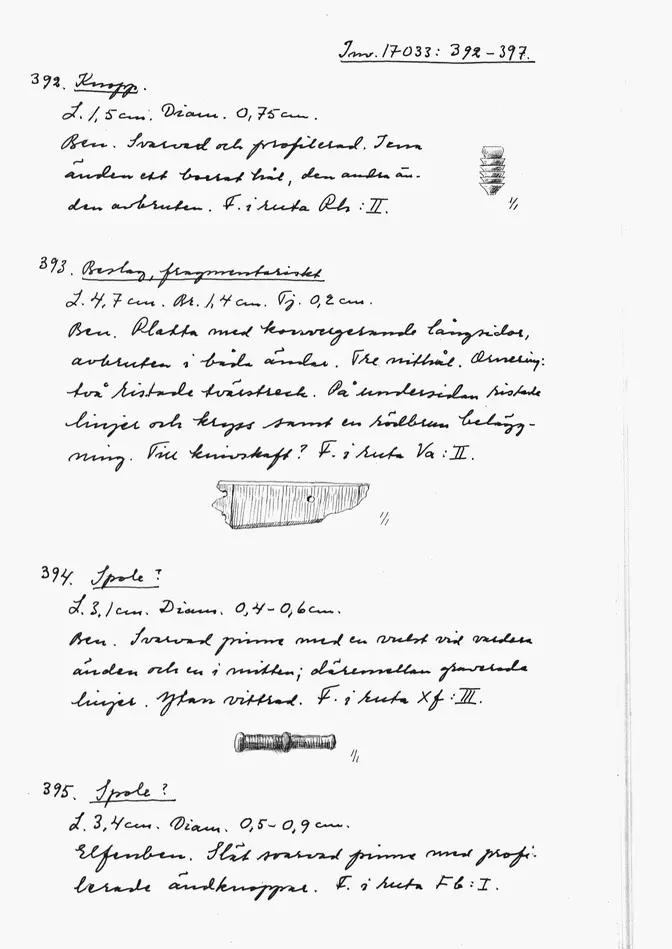 Inv. 17033: 392–397.
392. Knopp.
L. 1,5 cm. Diam. 0,75 cm.
Ben. Svarvad och profilerad. I ena
änden ett borrat hål, den andra än-
den avbruten. F. i ruta Rh : II.
1/1
393. Beslag, fragmentariskt
L. 4,7 cm. Br. 1,4 cm. Tj. 0,2 cm.
Ben. Platta med konvergerande långsidor,
avbruten i båda ändar. Tre nithål. Ornering:
två ristade tvärstreck. På undersidan ristade
linjer och kryss samt en rödbrun belägg-
ning. Till knivskaft? F. i ruta Va : II.
1/1
394. Spole?
L. 3,1 cm. Diam. 0,4–0,6 cm.
Ben. Svarvad pinne med en vulst vid vardera
änden och en i mitten; däremellan graverade
linjer. Ytan vittrad. F. i ruta Xf : III.
1/1
395. Spole?
L. 3,4 cm. Diam. 0,5–0,9 cm.
Elfenben. Slät svarvad pinne med profi-
lerade ändknoppar. F. i ruta Fb : I.